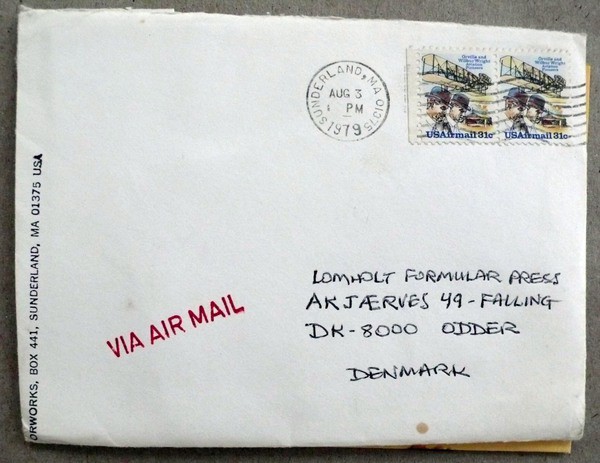 SUNDERLAND, MA 01375
AUG 3
PM
1979
Orville and
Wilbur Wright
Aviation
Pioneers
USAirmail 31c
Orville and
Wilbur Wright
Aviation
Pioneers
USAirmail 31c
ORWORKS, BOX 441, SUNDERLAND, MA 01375 USA
VIA AIR MAIL
LOMHOLT FORMULAR PRESS
AKJÆRVES 49-FALLING
DK-8000 ODDER
DENMARK